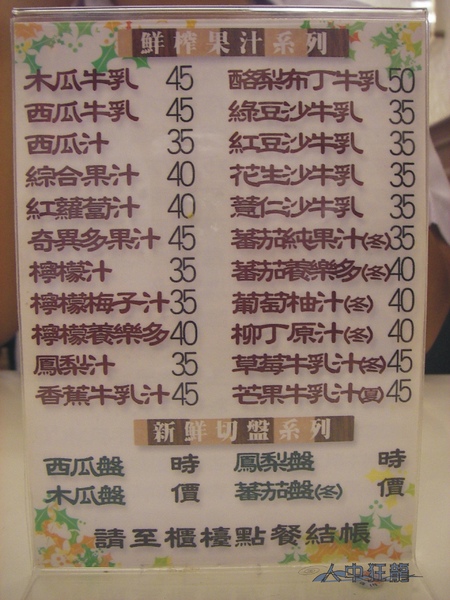 鮮榨果汁系列
木瓜牛乳 45
西瓜牛乳 45
西瓜汁 35
綜合果汁 40
紅蘿蔔汁 40
奇異多果汁 45
檸檬汁 35
檸檬梅子汁 35
檸檬養樂多 40
鳳梨汁 35
香蕉牛乳汁 45
酪梨布丁牛乳 50
綠豆沙牛乳 35
紅豆沙牛乳 35
花生沙牛乳 35
薏仁沙牛乳 35
蕃茄純果汁(冬) 35
蕃茄養樂多(冬) 40
葡萄柚汁(冬) 40
柳丁原汁(冬) 40
草莓牛乳汁(冬) 45
芒果牛乳汁(夏) 45
新鮮切盤系列
西瓜盤 時
木瓜盤 價
鳳梨盤 時
蕃茄盤(冬) 價
請至櫃檯點餐結帳
人中狂龍